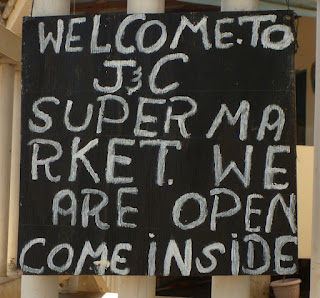 WELCOME.TO
J&C
SUPER MA
RKET. WE
ARE OPEN
COME INSIDE